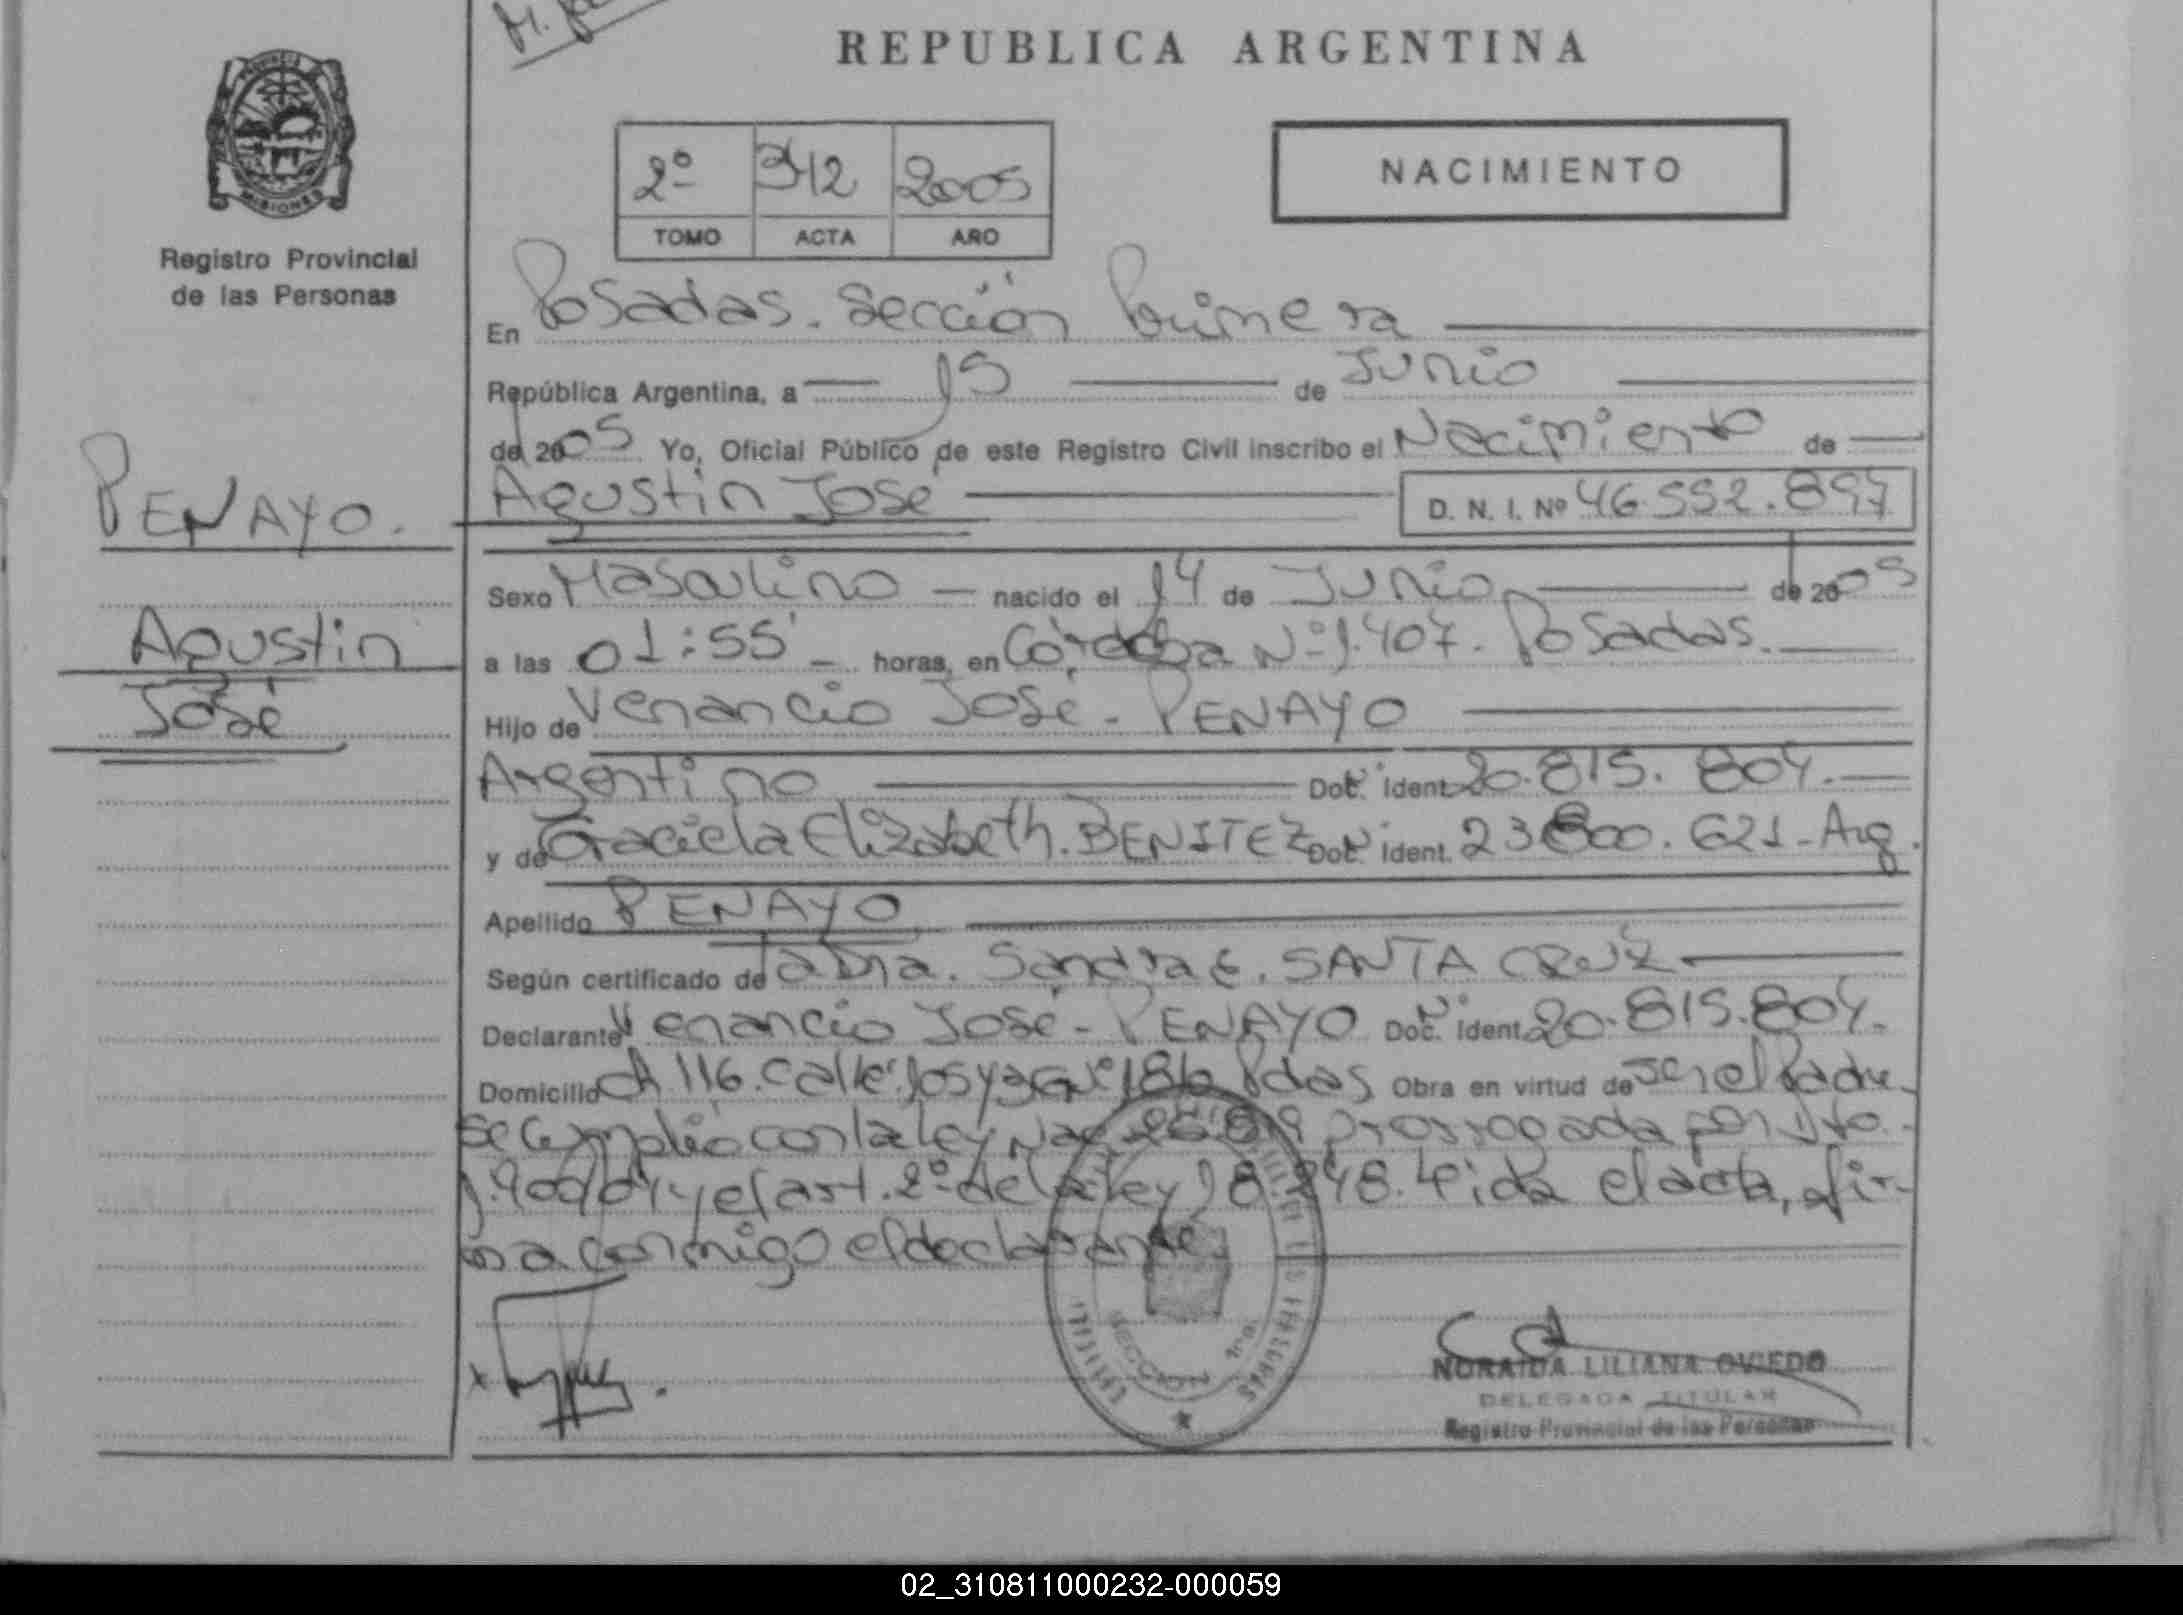 REPUBLICA ARGENTINA
PROVINCIA
MISIONES
Registro Provincial
de las Personas
NACIMIENTO
2º 342 2005
TOMO ACTA AÑO
En Posadas. Sección Primera
República Argentina, a 15 de Junio
de 2005 Yo, Oficial Público de este Registro Civil inscribo el Nacimiento de
Agustin José D. N. I. Nº 46.552.897
PENAYO.
Agustin
José
Sexo Masculino nacido el 14 de Junio de 2005
a las 01:55' horas, en Córdoba Nº 1.407. Posadas.
Hijo de Venancio José - PENAYO
Argentino Doc. ident. 20.815.804.
y de Graciela Elizabeth. BENITEZ Doc. ident. 23.800.621-Arg.
Apellido PENAYO
Según certificado de la Dra. Sandra E. SANTA CRUZ
Declarante Venancio José - PENAYO Doc. Ident. 20.815.804.
Domicilio Ch 116. calle Nº 186 Pdas Obra en virtud de ser el Padre
se cumplió con la ley Nac prorrogada por Dto.
y el art. 2º de la ley 18.248. Leida el acta, fir-
ma conmigo el declarante.
SECCION 1ra.
POSADAS
MISIONES
NORAIDA LILIANA OVIEDO
DELEGADA TITULAR
Registro Provincial de las Personas
02_310811000232-000059